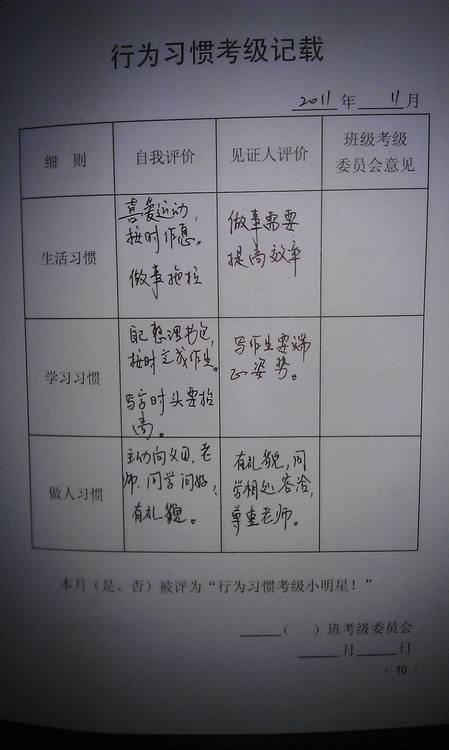 行为习惯考级记载
2011年11月
细 则
自我评价
见证人评价
班级考级
委员会意见
生活习惯
喜爱运动，
按时作息。
做事拖拉
做事需要
提高效率
学习习惯
自己整理书包，
按时完成作业。
写字时头要抬
高。
写作业要端
正姿势。
做人习惯
主动向父母、老
师、同学问好，
有礼貌。
有礼貌，同
学相处容洽，
尊重老师。
本月（是、否）被评为“行为习惯考级小明星！”
（ ）班考级委员会
月 日
· 10 ·